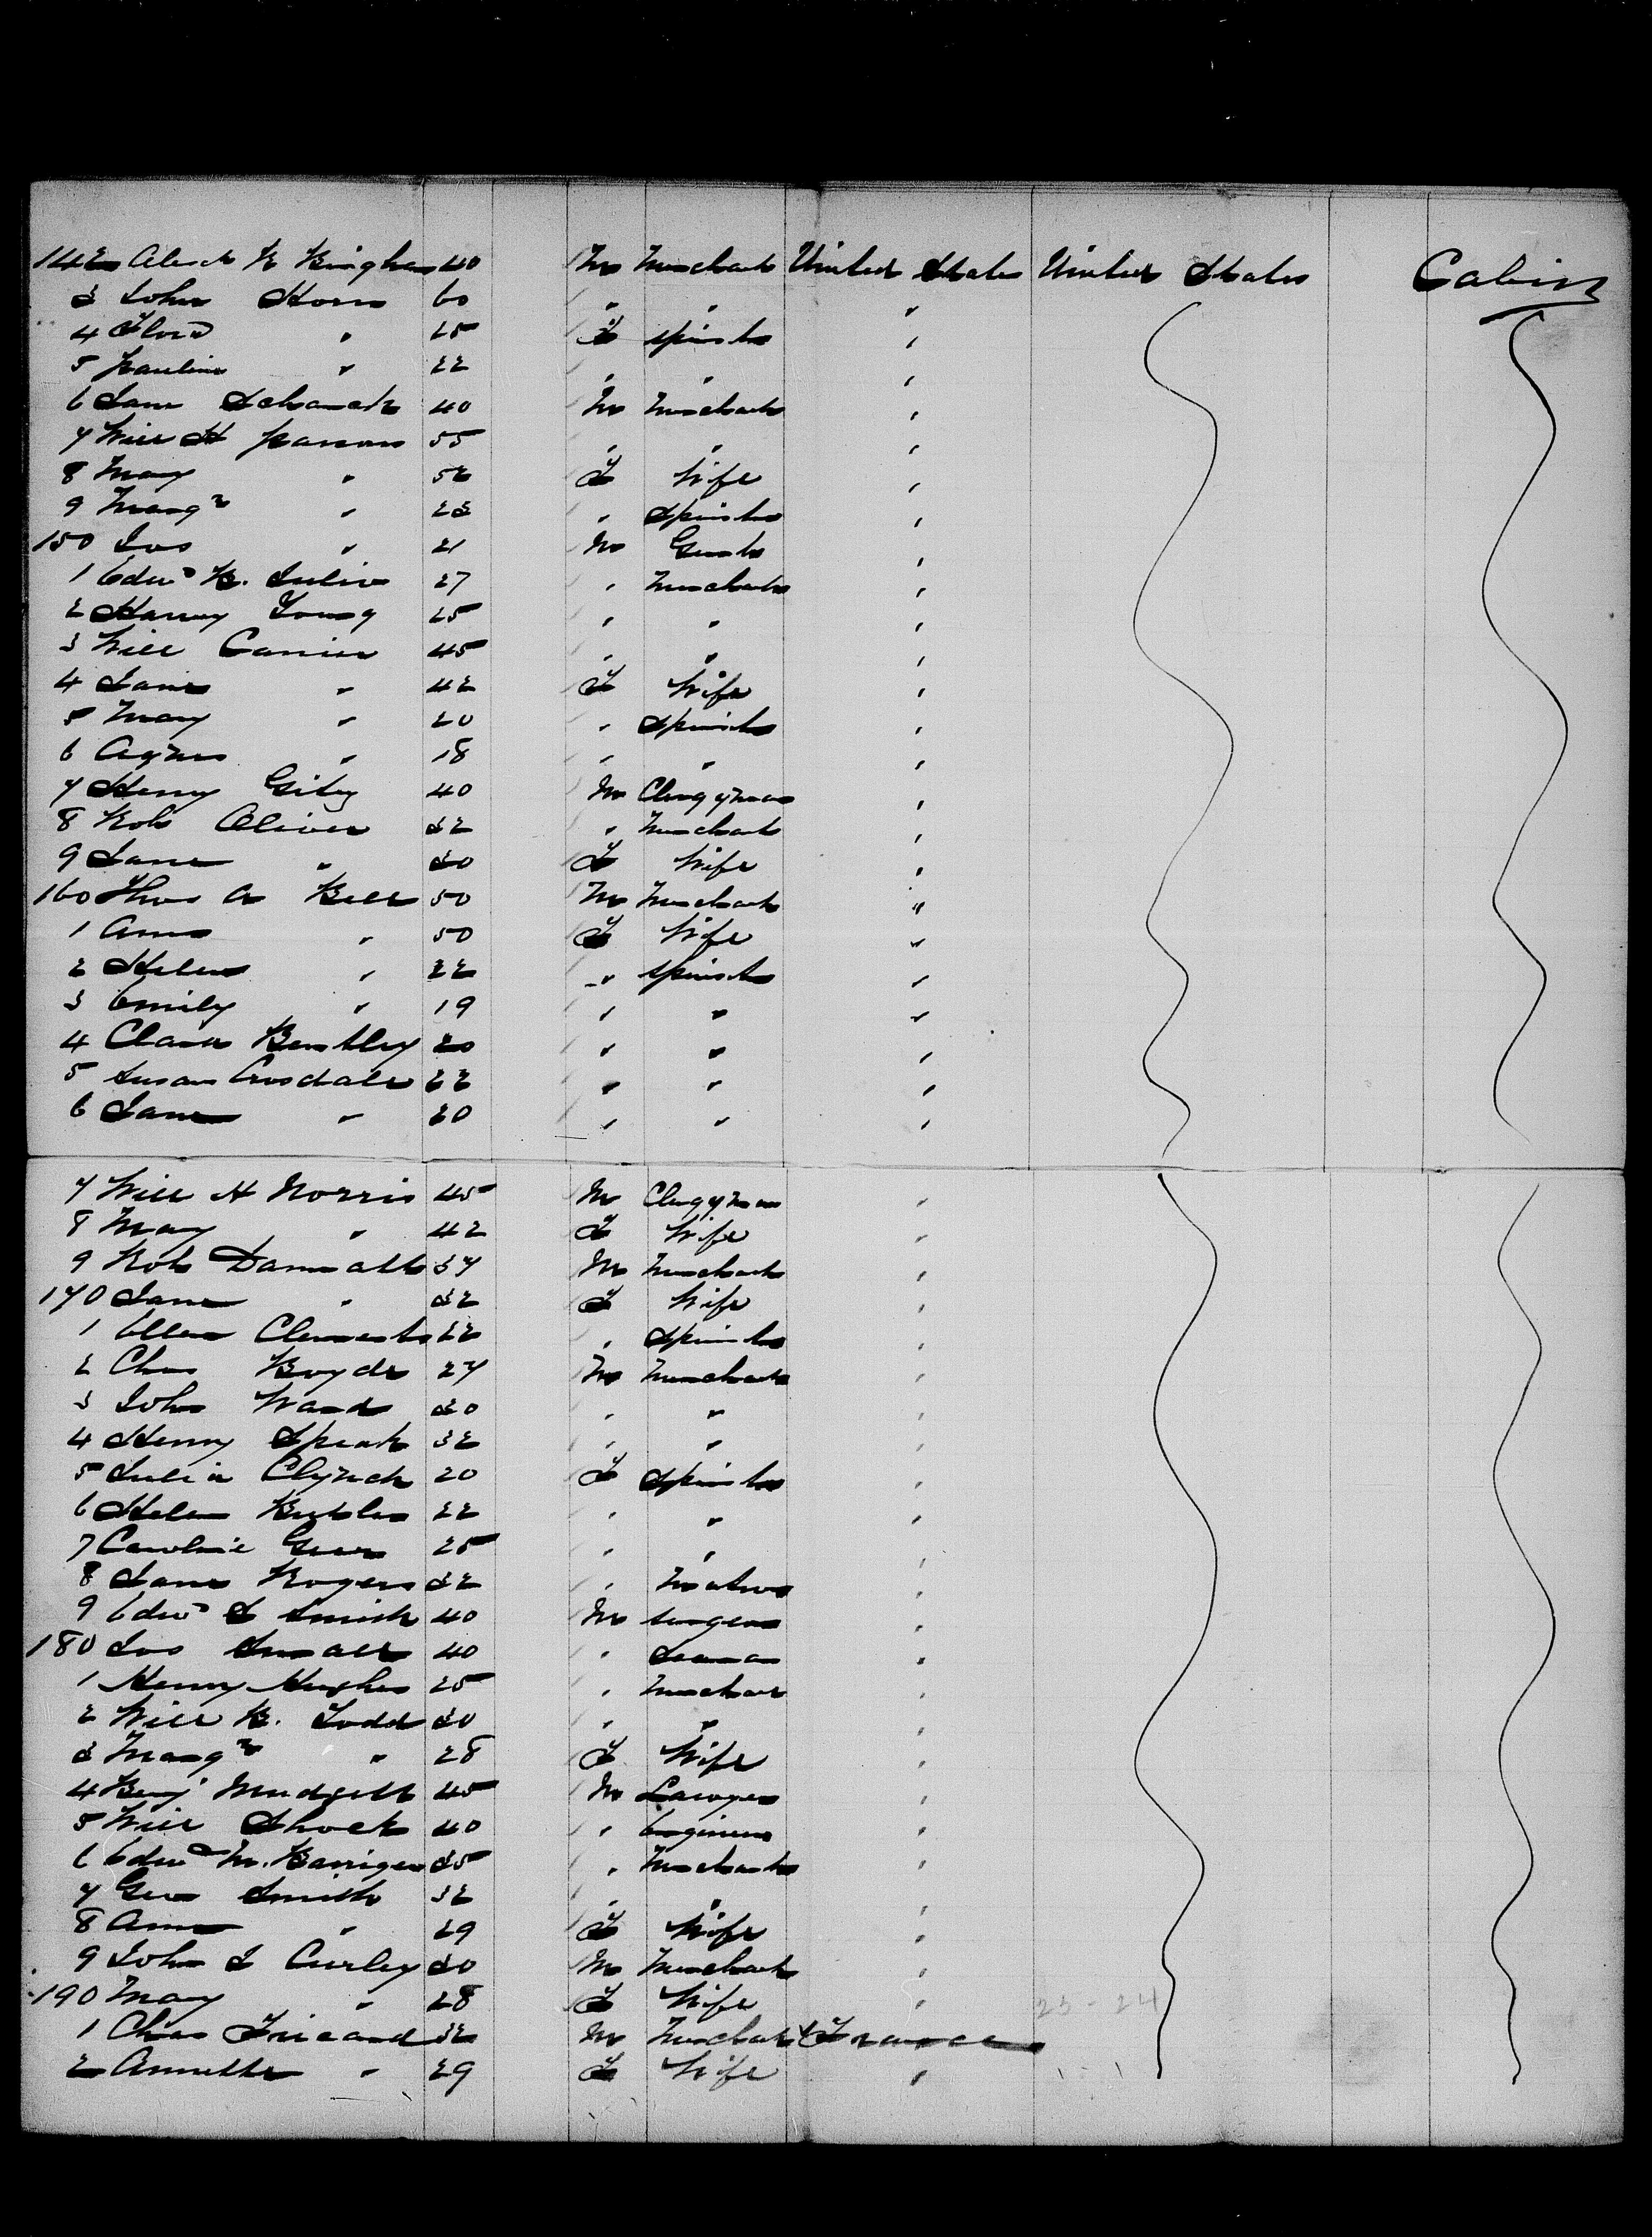 142 Alexdr K Bingham 40 M Merchant United States United States Cabin
3 John Horn 60 " " "
4 Flora " 25 F Spinster "
5 Pauline " 22 " " "
6 Sam Schanck 40 M Merchant "
7 Will H Parsons 55 " " "
8 Mary " 52 F Wife "
9 Margt " 23 " Spinster "
150 Jos " 21 M Gent "
1 Edwd B. Julio 27 " Merchant "
2 Harry Young 25 " " "
3 Will Carrier 45 " " "
4 Jane " 42 F Wife "
5 Mary " 20 " Spinster "
6 Agnes " 18 " " "
7 Henry Giby 40 M Clergyman "
8 Rob Oliver 32 " Merchant "
9 Jane " 30 F Wife "
160 Thos A Bell 50 M Merchant "
1 Ann " 50 F Wife "
2 Helen " 22 " Spinster "
3 Emily " 19 " " "
4 Clara Bentley 20 " " "
5 Susan Crosdale 22 " " "
6 Jane " 20 " " "
7 Will H Norris 45 M Clergyman "
8 Mary " 42 F Wife "
9 Rob 37 M Merchant "
170 Jane " 32 F Wife "
1 Ellen Clements 22 " Spinster "
2 Chas Boyde 27 M Merchant "
3 John Ward 30 " " "
4 Henry Speak 32 " " "
5 Julia Clynch 20 F Spinster "
6 Helen Butler 22 " " "
7 Caroline 25 " " "
8 Jane Rogers 32 " Matron "
9 Edwd S Smith 40 M Surgeon "
180 Jos Small 40 " Seaman "
1 Henry Hughes 25 " Merchant "
2 Will B. Todd 30 " " "
3 Margt " 28 F Wife "
4 Benj Mudgett 45 M Lawyer "
5 Will Shock 40 " Engineer "
6 Edwd M. Barrigen 35 " Merchant "
7 Geo Smith 32 " " "
8 Ann " 29 F Wife "
9 John J Curley 30 M Merchant "
190 Mary " 28 F Wife " 23-24
1 Chas Fricand 32 M Merchant France
2 Annette " 29 F Wife "